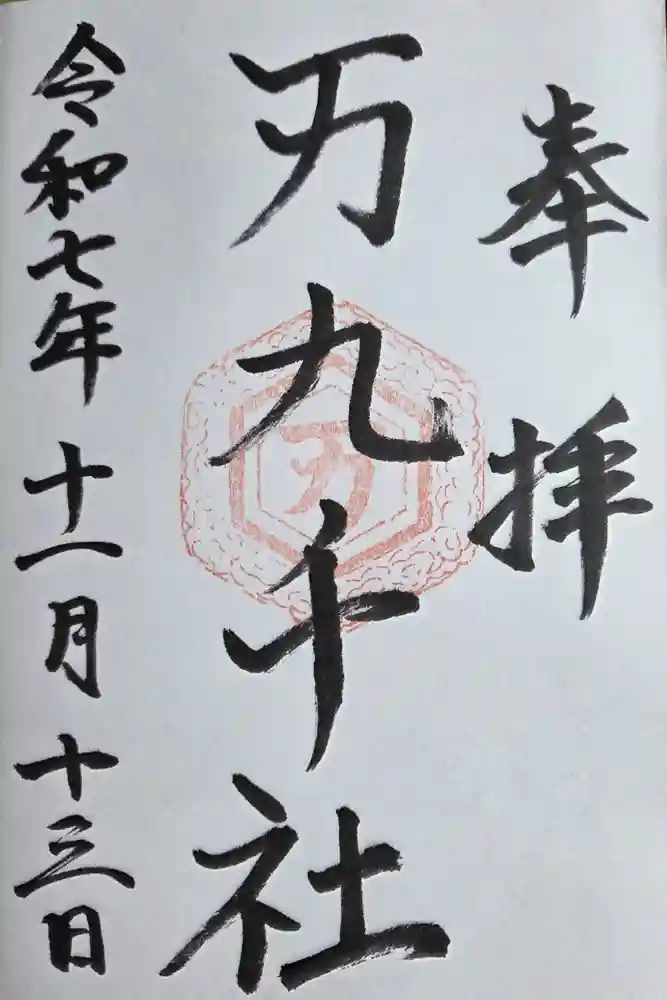 奉拝
万九千社
万
令和七年十一月十三日